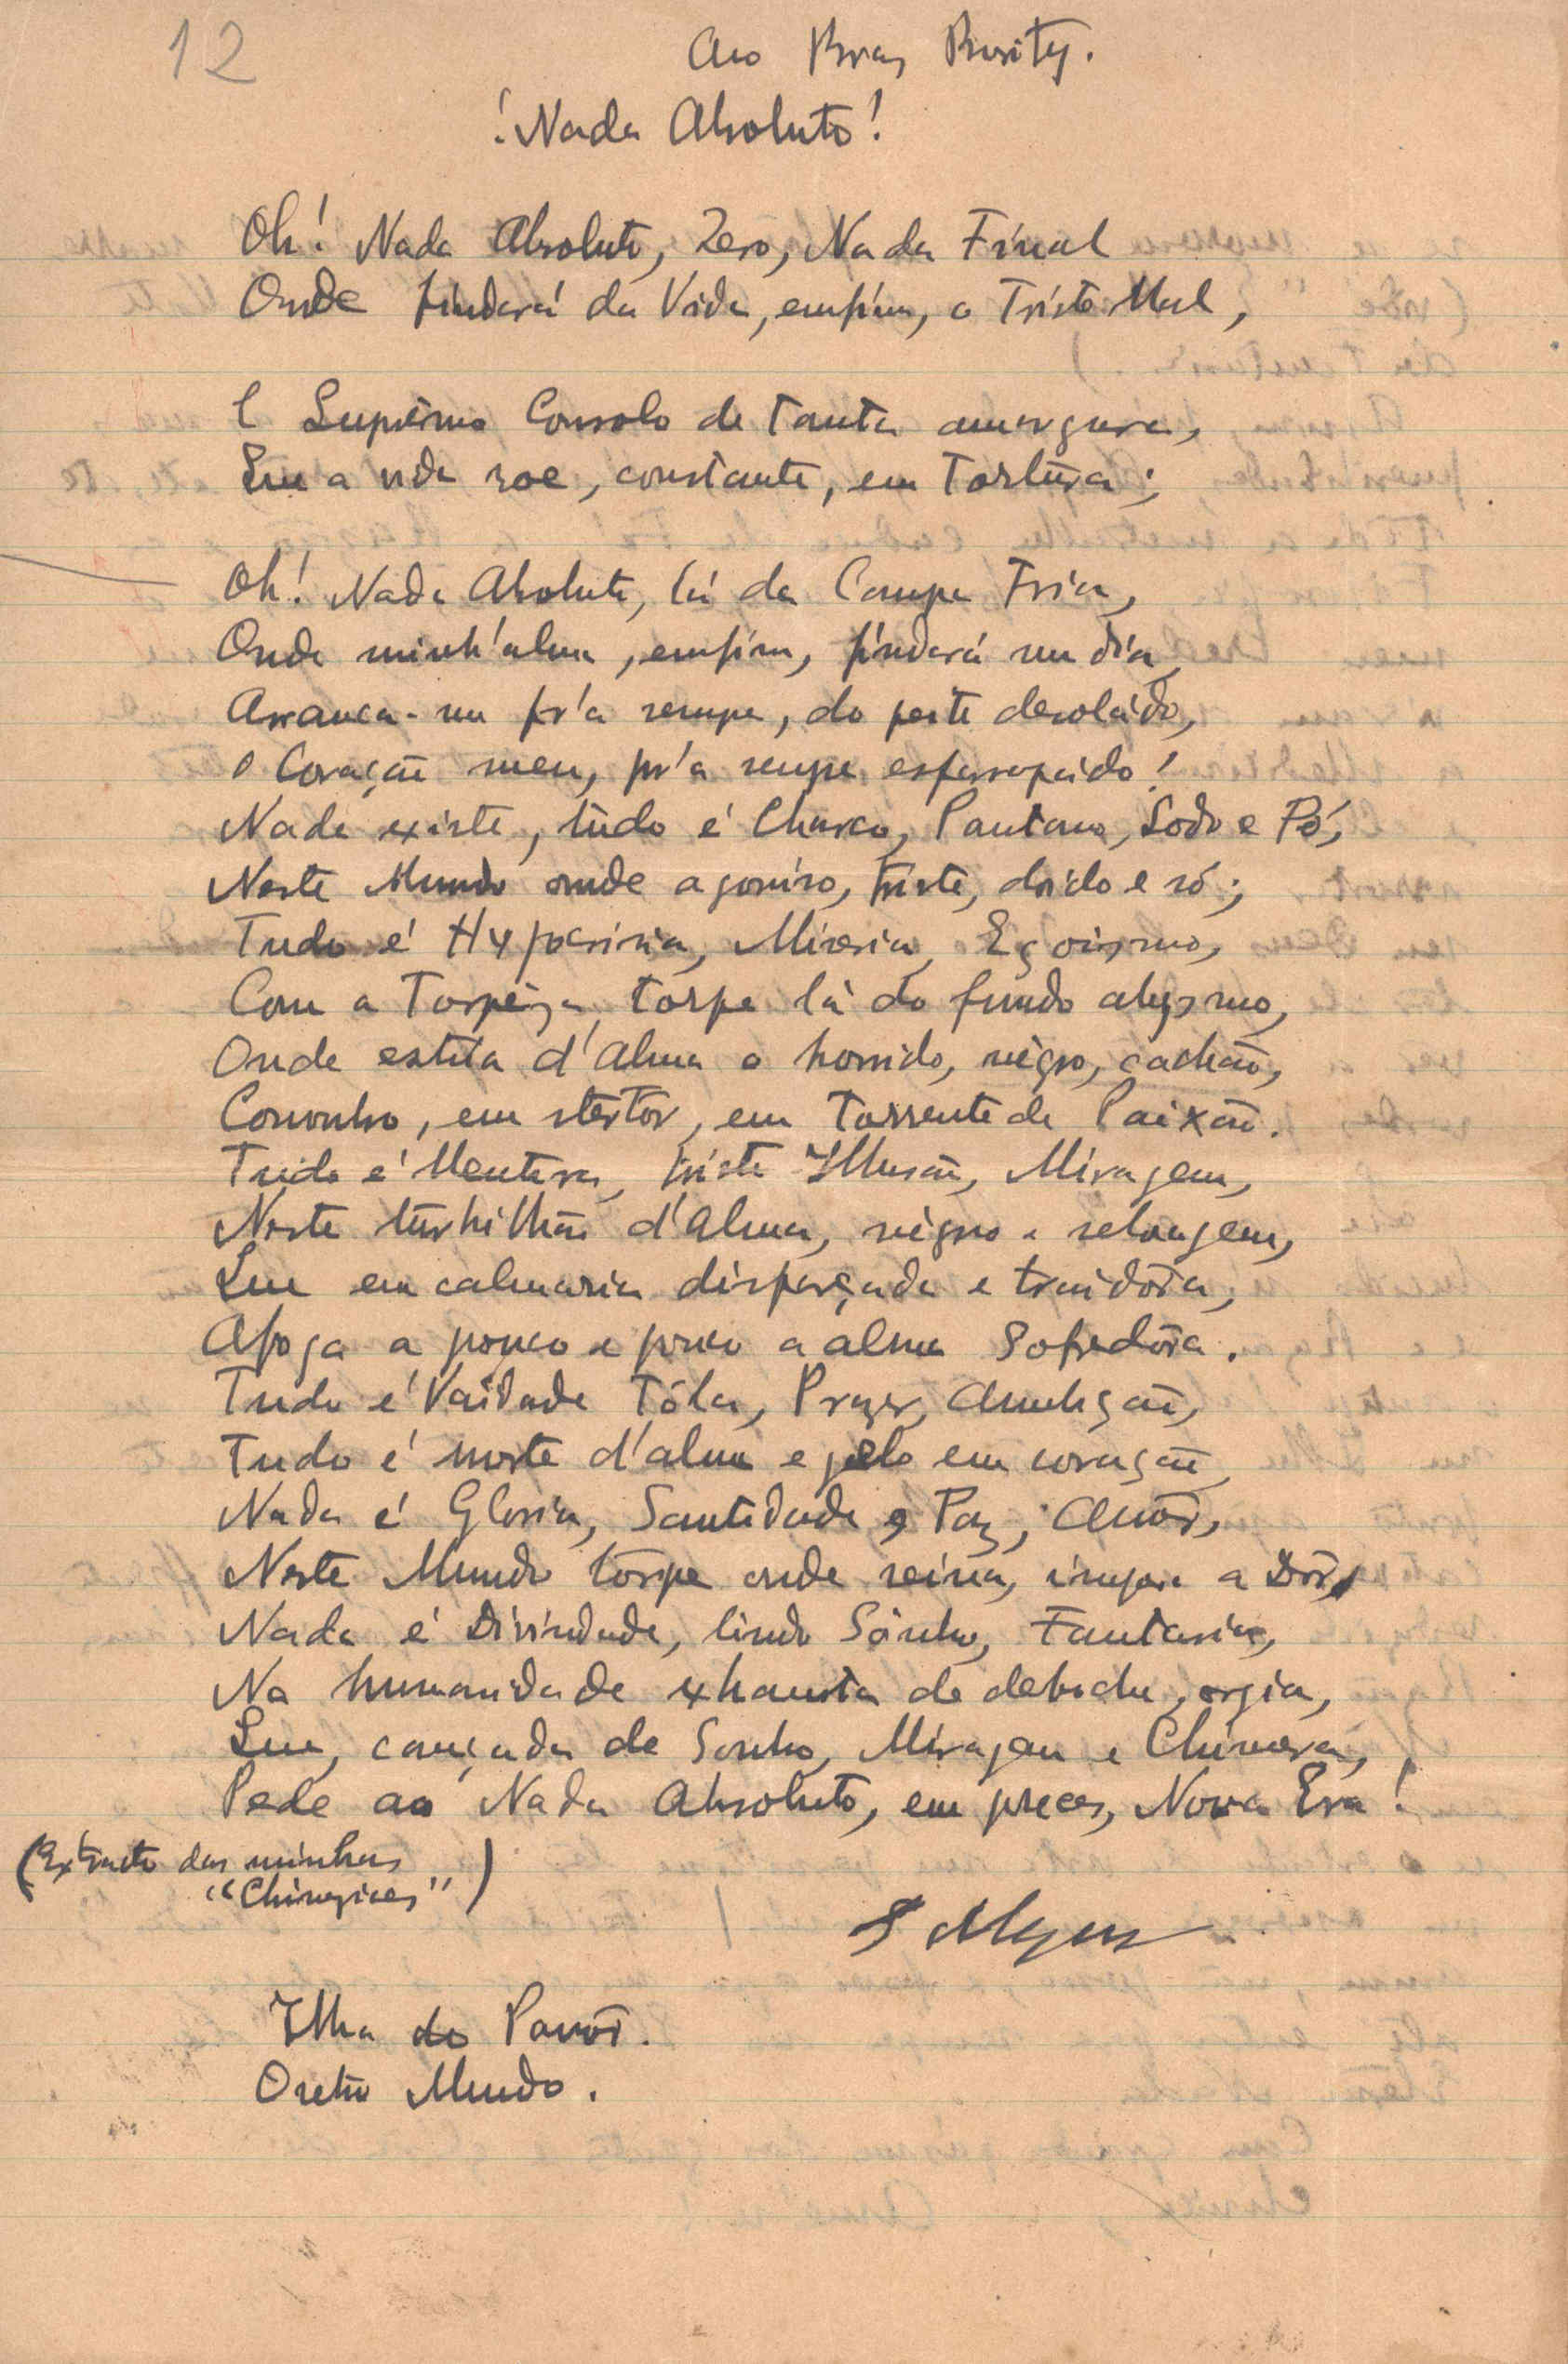 12
Ao Bras Burity.
! Nada Absoluto!
Oh! Nada Absoluto, Zero, Nada Final
Onde findará da Vida, emfim, o Triste Mal,
É Suprêmo Consolo de tanta amargura,
Que a vida roe, constante, em Tortura;
Oh! Nada Absoluto, lá da Campa Fria,
Onde minh'alma, emfim, findará um dia,
Arranca-me pr'a sempre, do peito desolado,
O Coração meu, pr'a sempre esfarrapado!
Nada existe, tudo é Charco, Pantano, Lodo e Pó,
Neste Mundo onde agoniso, triste, doido e só;
Tudo é Hypocrisia, Miseria, Egoismo,
Com a Torpêza torpe lá do fundo abysmo,
Onde estila d'Alma o horrido, nêgro, cachão,
Convulso, em stertor, em Torrente de Paixão.
Tudo é Mentira, triste Illusão, Miragem,
Neste turbilhão d'Alma, nêgro e selvagem,
Que em calmaria disfarçada e traidôra,
Afoga a pouco e pouco a alma Sofredôra.
Tudo é Vaidade Tôla, Prazer, Ambição,
Tudo é morte d'alma e gelo em coração,
Nada é Gloria, Santidade e Paz, Amôr,
Neste Mundo torpe onde reina, impera a Dôr,
Nada é Divindade, lindo Sônho, Fantasia,
Na humanidade exhausta de deboche, orgia,
Que, cançada de Sonho, Miragem e Chimera,
Pede ao Nada Absoluto, em preces, Nova Era!
(Extracto das minhas
"Chinezices")
Ilha do Pavôr.
Outro Mundo.